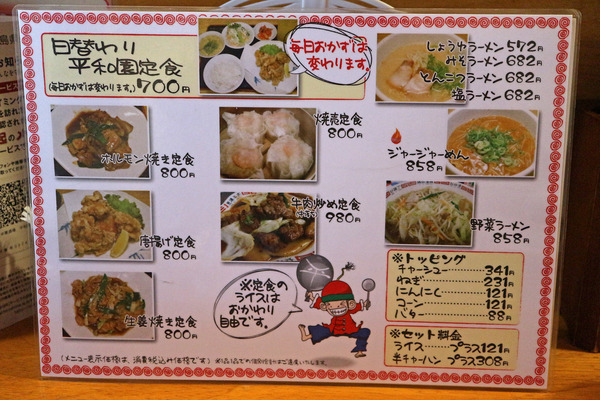 日替わり
平和園定食
(毎日おかずは変わります。) 700円
毎日おかずは
変わります。
しょうゆラーメン 572円
みそラーメン 682円
とんこつラーメン 682円
塩ラーメン 682円
ホルモン焼き定食
800円
焼売定食
800円
ジャージャーめん
858円
唐揚げ定食
800円
牛肉炒め定食
980円
野菜ラーメン
858円
生姜焼き定食
800円
※定食の
ライスは
おかわり
自由です。
※トッピング
チャーシュー 341円
ねぎ 231円
にんにく 121円
コーン 121円
バター 88円
※セット料金
ライス プラス121円
半チャーハン プラス308円
(メニュー表示価格は、消費税込み価格です)